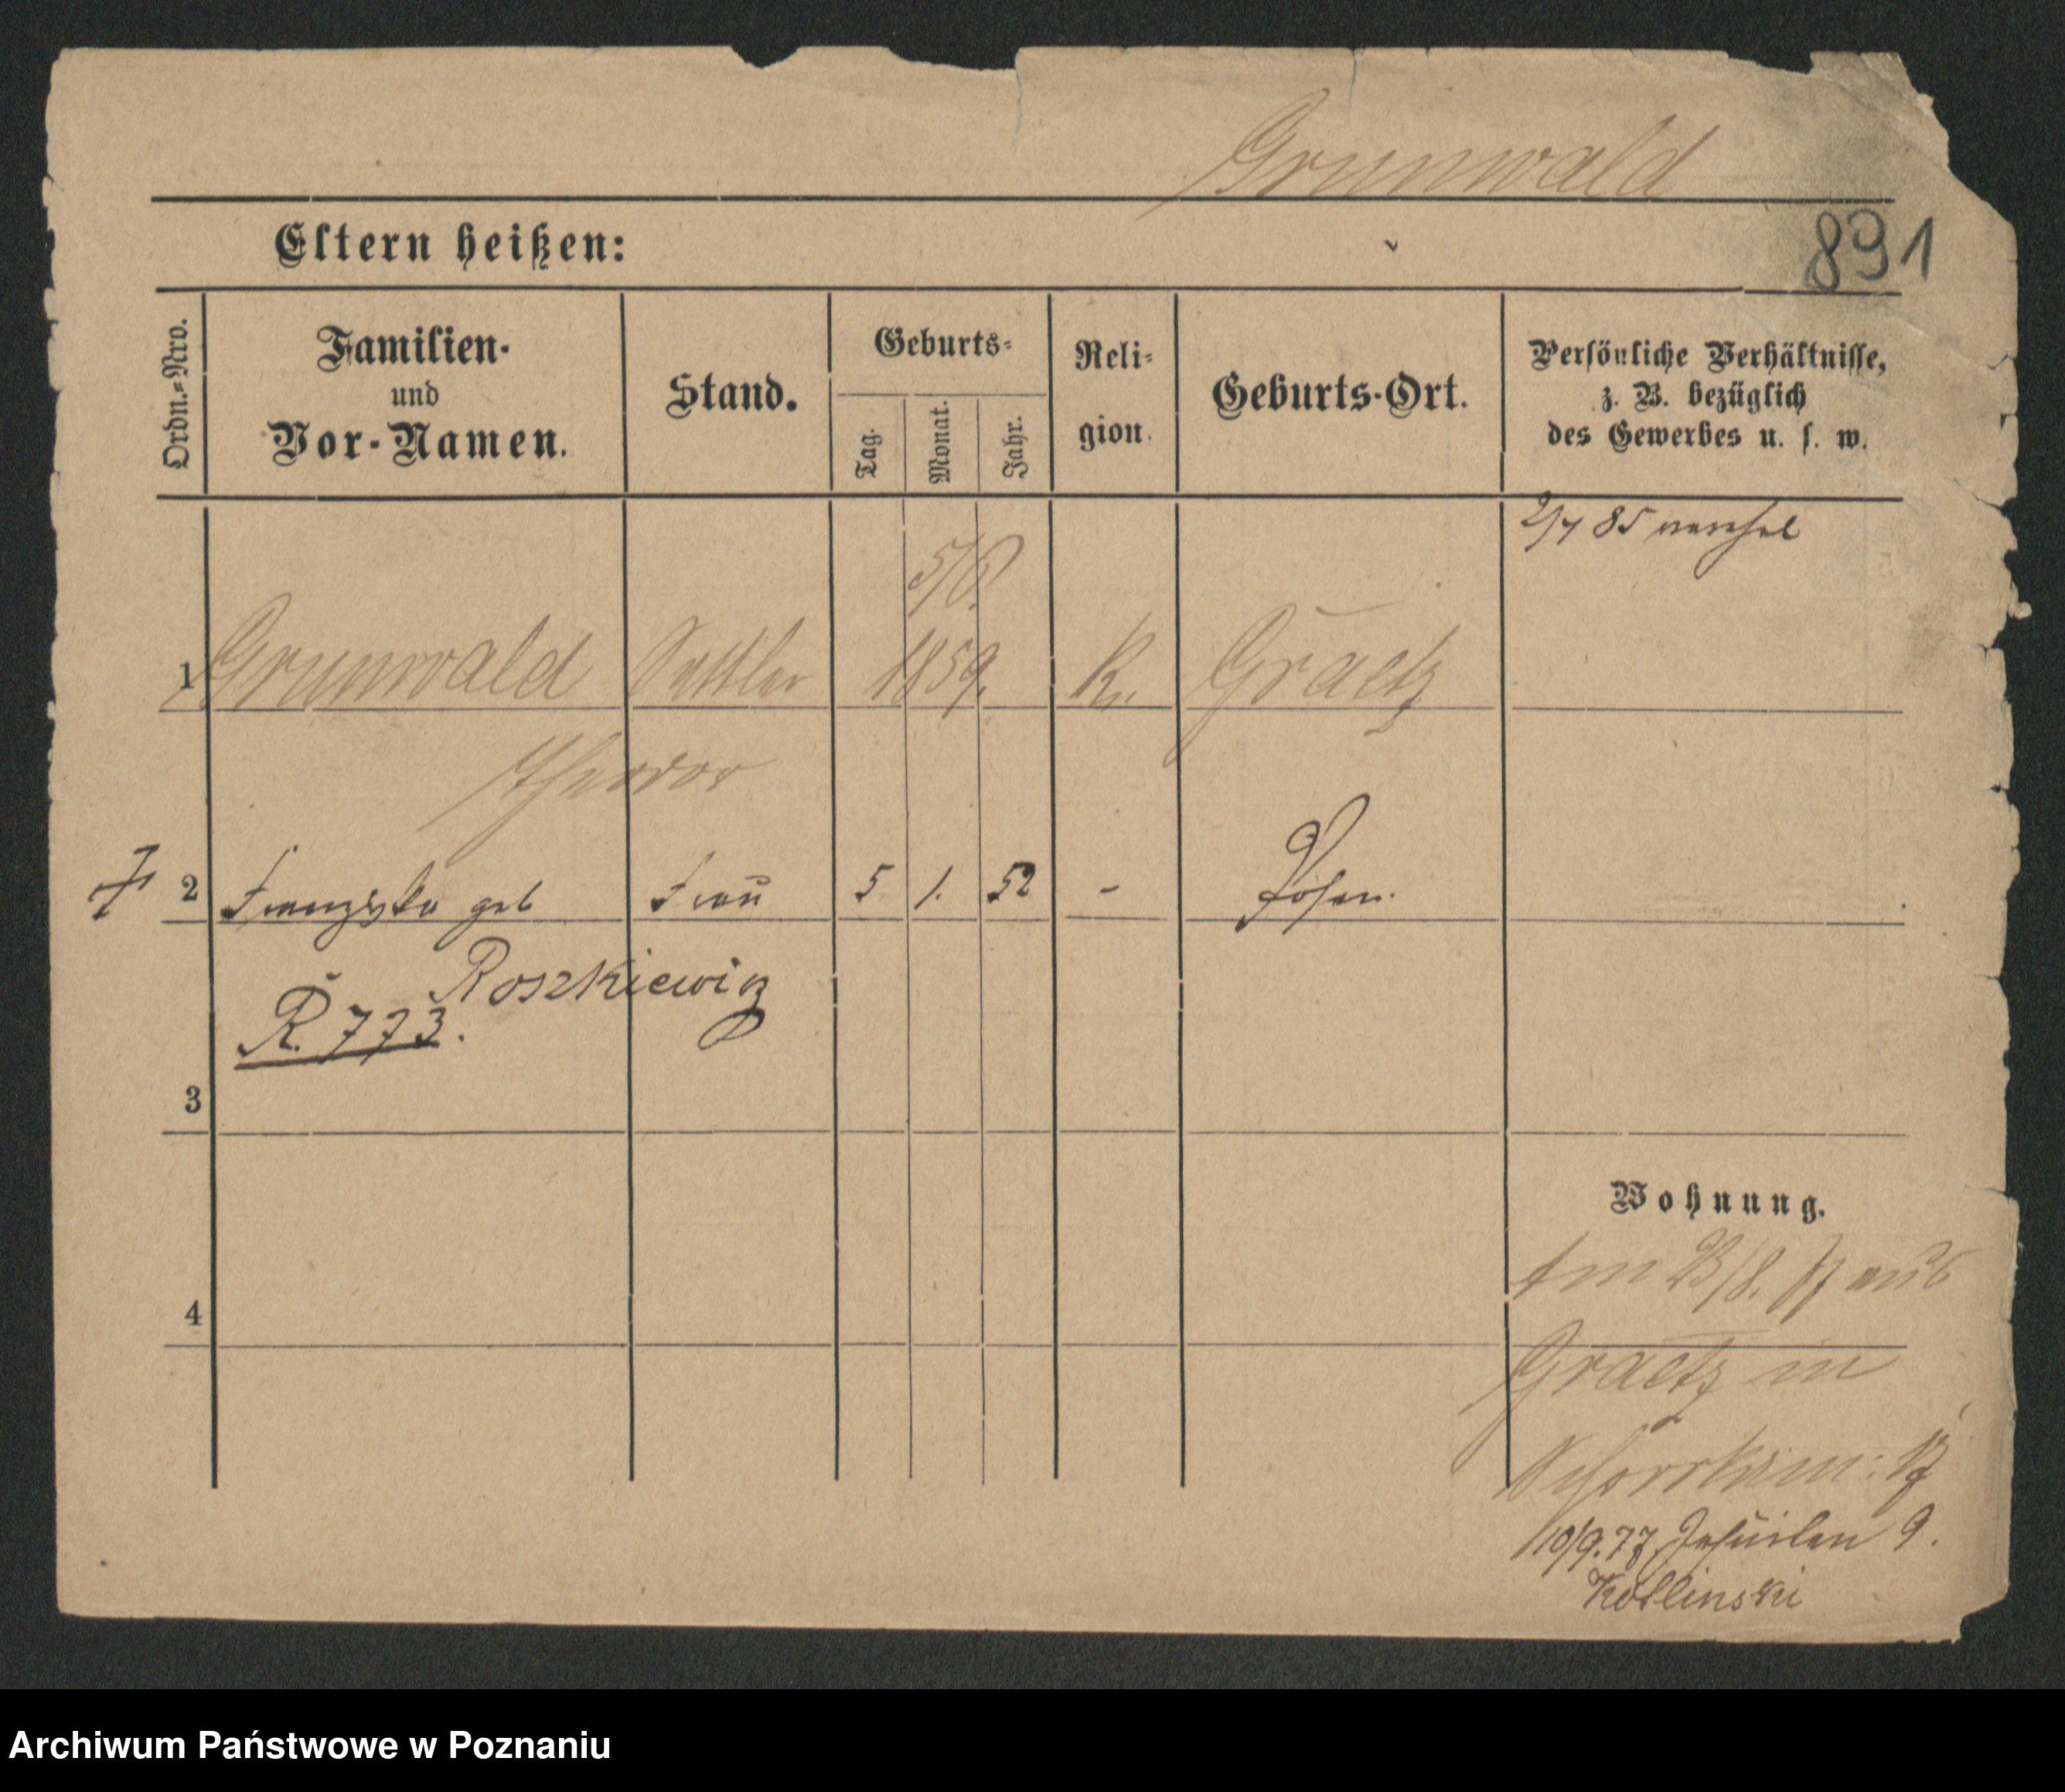 Grunwald
Eltern heißen:
891
Ordn.=Nro.
Familien-
und
Vor-Namen.
Stand.
Geburts=
Tag.
Monat.
Jahr.
Reli=
gion.
Geburts-Ort.
Persönliche Verhältnisse,
z. B. bezüglich
des Gewerbes u. s. w.
85
5/6.
1 Grunwald Sattler 1859. K. Graetz
Theodor
2 Franziska geb Frau 5 1. 52 - Posen.
Roszkiewicz
R. 773.
3
Wohnung.
23/8. 77 aus
4
Graetz in
10/9.77 Jesuiten 9.
Kotlinski
Archiwum Państwowe w Poznaniu